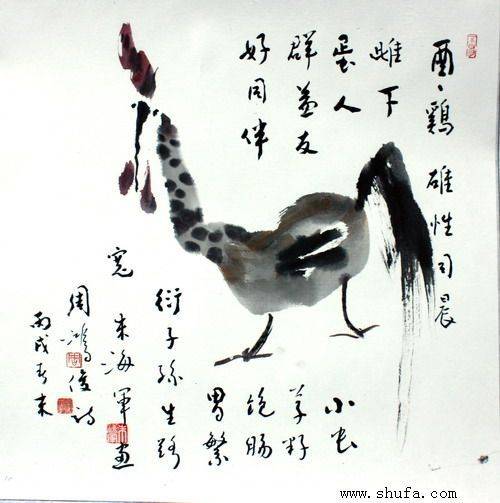 酉、鷄 雄性司晨
雌下
蛋人
群益友
好同伴
小虫
草籽
饱肠
胃繁
衍子孫生路
寬 朱海军画
周鴻俊诗
丙戌春末
www.shufa.com